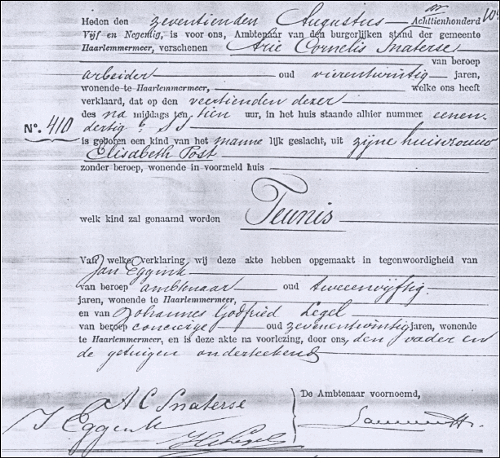 Heden den zeventienden Augustus Achttienhonderd
Vijf en Negentig, is voor ons, Ambtenaar van den burgerlijken stand der gemeente
Haarlemmermeer, verschenen Arie Cornelis Snaterse
van beroep
arbeider oud vierentwintig jaren,
wonende te Haarlemmermeer, welke ons heeft
verklaard, dat op den veertienden dezer
des na middags ten tien uur, in het huis staande alhier nummer eenen
No. 410 dertig
is geboren een kind van het manne lijk geslacht, uit zijne huisvrouw
Elisabeth Post
zonder beroep, wonende in voormeld huis
welk kind zal genaamd worden Teunis
Van welke verklaring wij deze akte hebben opgemaakt in tegenwoordigheid van
Jan Eggink
van beroep ambtenaar oud tweeenvijftig
jaren, wonende te Haarlemmermeer,
en van Johannes Godfried Legel
van beroep concierge oud zevenentwintig jaren, wonende
te Haarlemmermeer, en is deze akte na voorlezing, door ons, den vader en
de getuigen onderteekend
De Ambtenaar voornoemd,
A C Snaterse
J Eggink